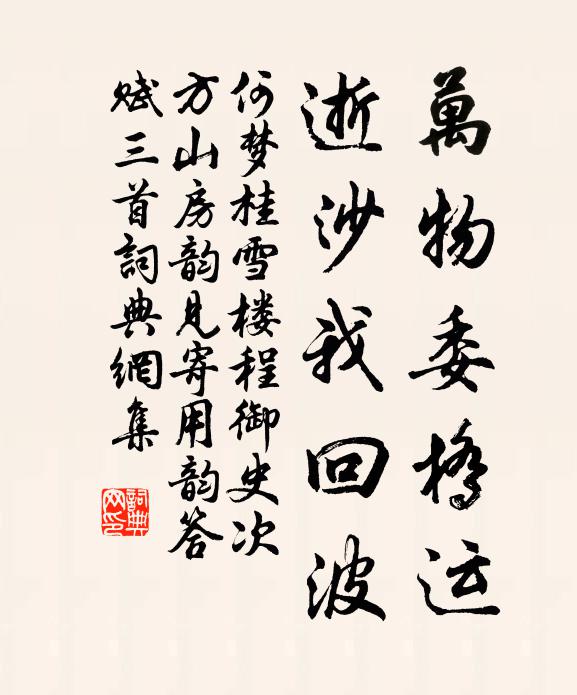 萬物委橋运
逝沙我回波
何梦桂雪楼程御史次
方山房韵見寄用韵答
赋三首詞典網集
詞典网印